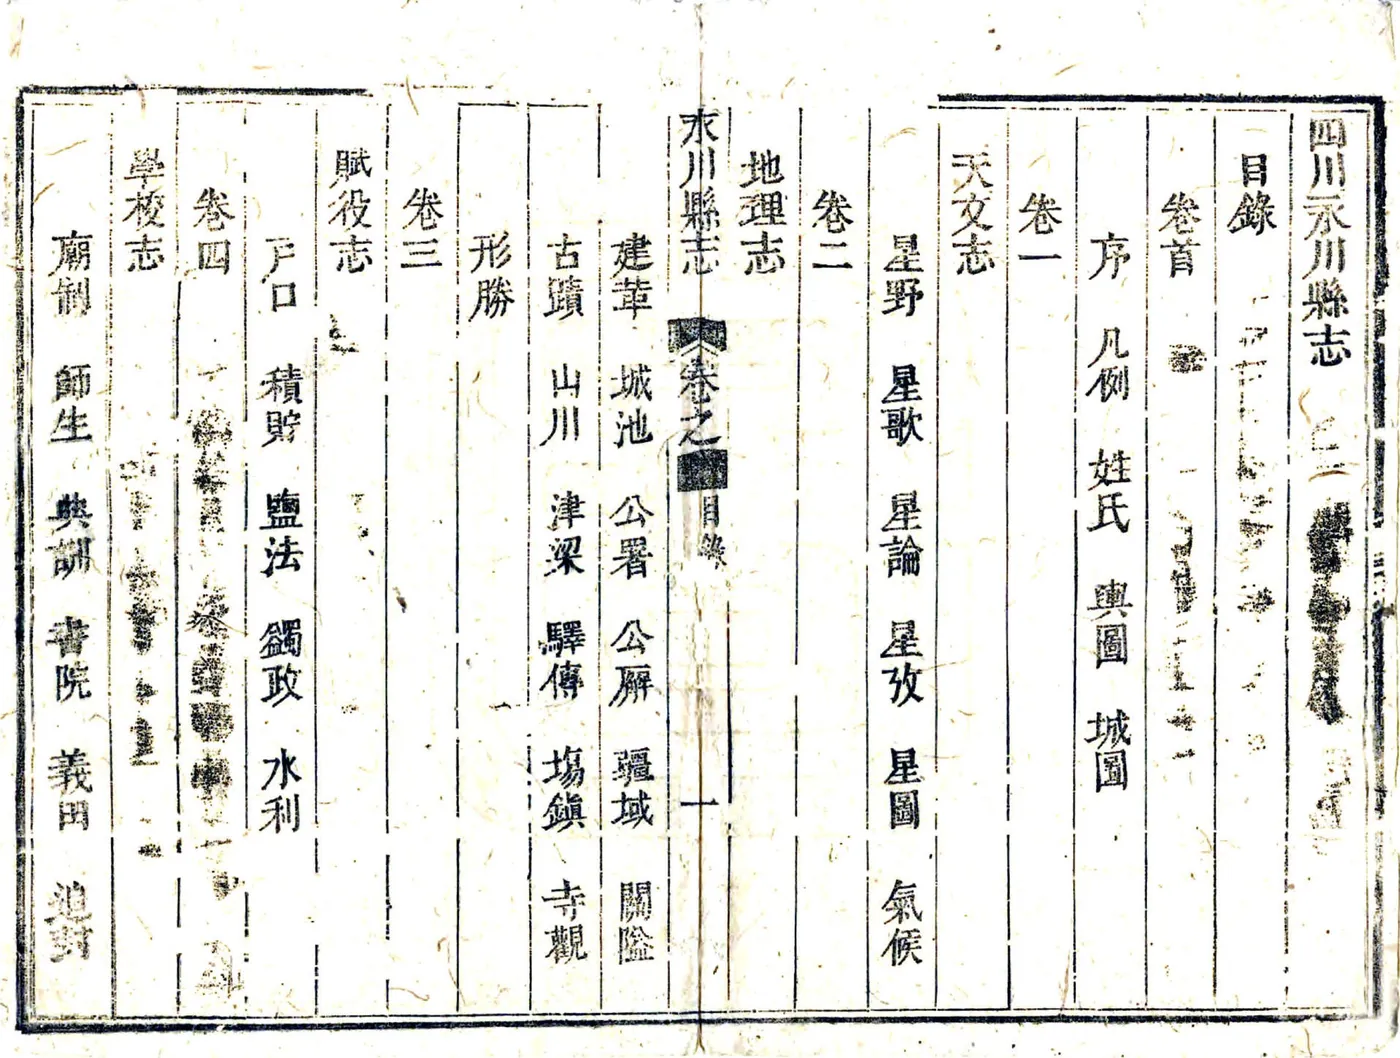 四川永川縣志
目錄
卷首
序 凡例 姓氏 輿圖 城圖
卷一
天文志
星野 星歌 星論 星攷 星圖 氣候
卷二
地理志
永川縣志 卷之 目錄 一
建革 城池 公署 公廨 疆域 關隘
古蹟 山川 津梁 驛傳 塲鎮 寺觀
形勝
卷三
賦役志
戶口 積貯 鹽法 蠲政 水利
卷四
學校志
廟制 師生 典訓 書院 義田 追封